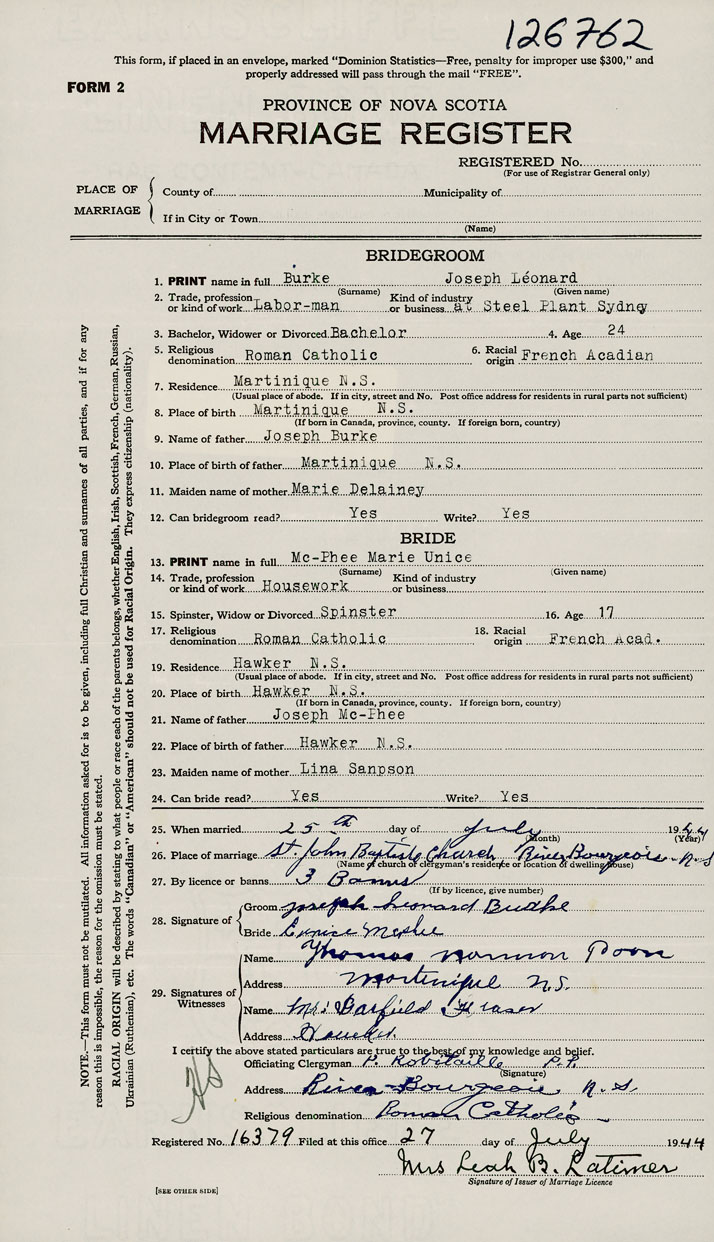 126762
This form, if placed in an envelope, marked "Dominion Statistics—Free, penalty for improper use $300," and
properly addressed will pass through the mail "FREE".
FORM 2
PROVINCE OF NOVA SCOTIA
MARRIAGE REGISTER
REGISTERED No.
(For use of Registrar General only)
PLACE OF MARRIAGE
County of Municipality of
If in City or Town
(Name)
BRIDEGROOM
1. PRINT name in full Burke Joseph Léonard
(Surname) (Given name)
2. Trade, profession or kind of work Labor-man Kind of industry or business at Steel Plant Sydney
3. Bachelor, Widower or Divorced Bachelor 4. Age 24
5. Religious denomination Roman Catholic 6. Racial origin French Acadian
7. Residence Martinique N.S.
(Usual place of abode. If in city, street and No. Post office address for residents in rural parts not sufficient)
8. Place of birth Martinique N.S.
(If born in Canada, province, county. If foreign born, country)
9. Name of father Joseph Burke
10. Place of birth of father Martinique N.S.
11. Maiden name of mother Marie Delainey
12. Can bridegroom read? Yes Write? Yes
BRIDE
13. PRINT name in full Mc-Phee Marie Unice
(Surname) (Given name)
14. Trade, profession or kind of work Housework Kind of industry or business
15. Spinster, Widow or Divorced Spinster 16. Age 17
17. Religious denomination Roman Catholic 18. Racial origin French Acad.
19. Residence Hawker N.S.
(Usual place of abode. If in city, street and No. Post office address for residents in rural parts not sufficient)
20. Place of birth Hawker N.S.
(If born in Canada, province, county. If foreign born, country)
21. Name of father Joseph Mc-Phee
22. Place of birth of father Hawker N.S.
23. Maiden name of mother Lina Sanpson
24. Can bride read? Yes Write? Yes
25. When married 25th day of July 1944
(Month) (Year)
26. Place of marriage St. John Baptiste Church River Bourgeois N.S
(Name of church or clergyman's residence or location of dwelling house)
27. By licence or banns 3 Banns
(If by licence, give number)
28. Signature of
Groom Joseph Leonard Burke
Bride Eunice McPhee
29. Signatures of Witnesses
Name Thomas Norman
Address Martinique N.S.
Name Mrs Garfield Fraser
Address Hawker
I certify the above stated particulars are true to the best of my knowledge and belief.
Officiating Clergyman P. Robitaille P.P.
(Signature)
Address River-Bourgeois N.S
Religious denomination Roman Catholic
Registered No. 16379 Filed at this office 27 day of July 1944
Mrs Leah B. Latimer
Signature of Issuer of Marriage Licence
[SEE OTHER SIDE]
NOTE.—This form must not be mutilated. All information asked for is to be given, including full Christian and surnames of all parties, and if for any
reason this is impossible, the reason for the omission must be stated.
RACIAL ORIGIN will be described by stating to what people or race each of the parents belongs, whether English, Irish, Scottish, French, German, Russian,
Ukrainian (Ruthenian), etc. The words "Canadian" or "American" should not be used for Racial Origin. They express citizenship (nationality).